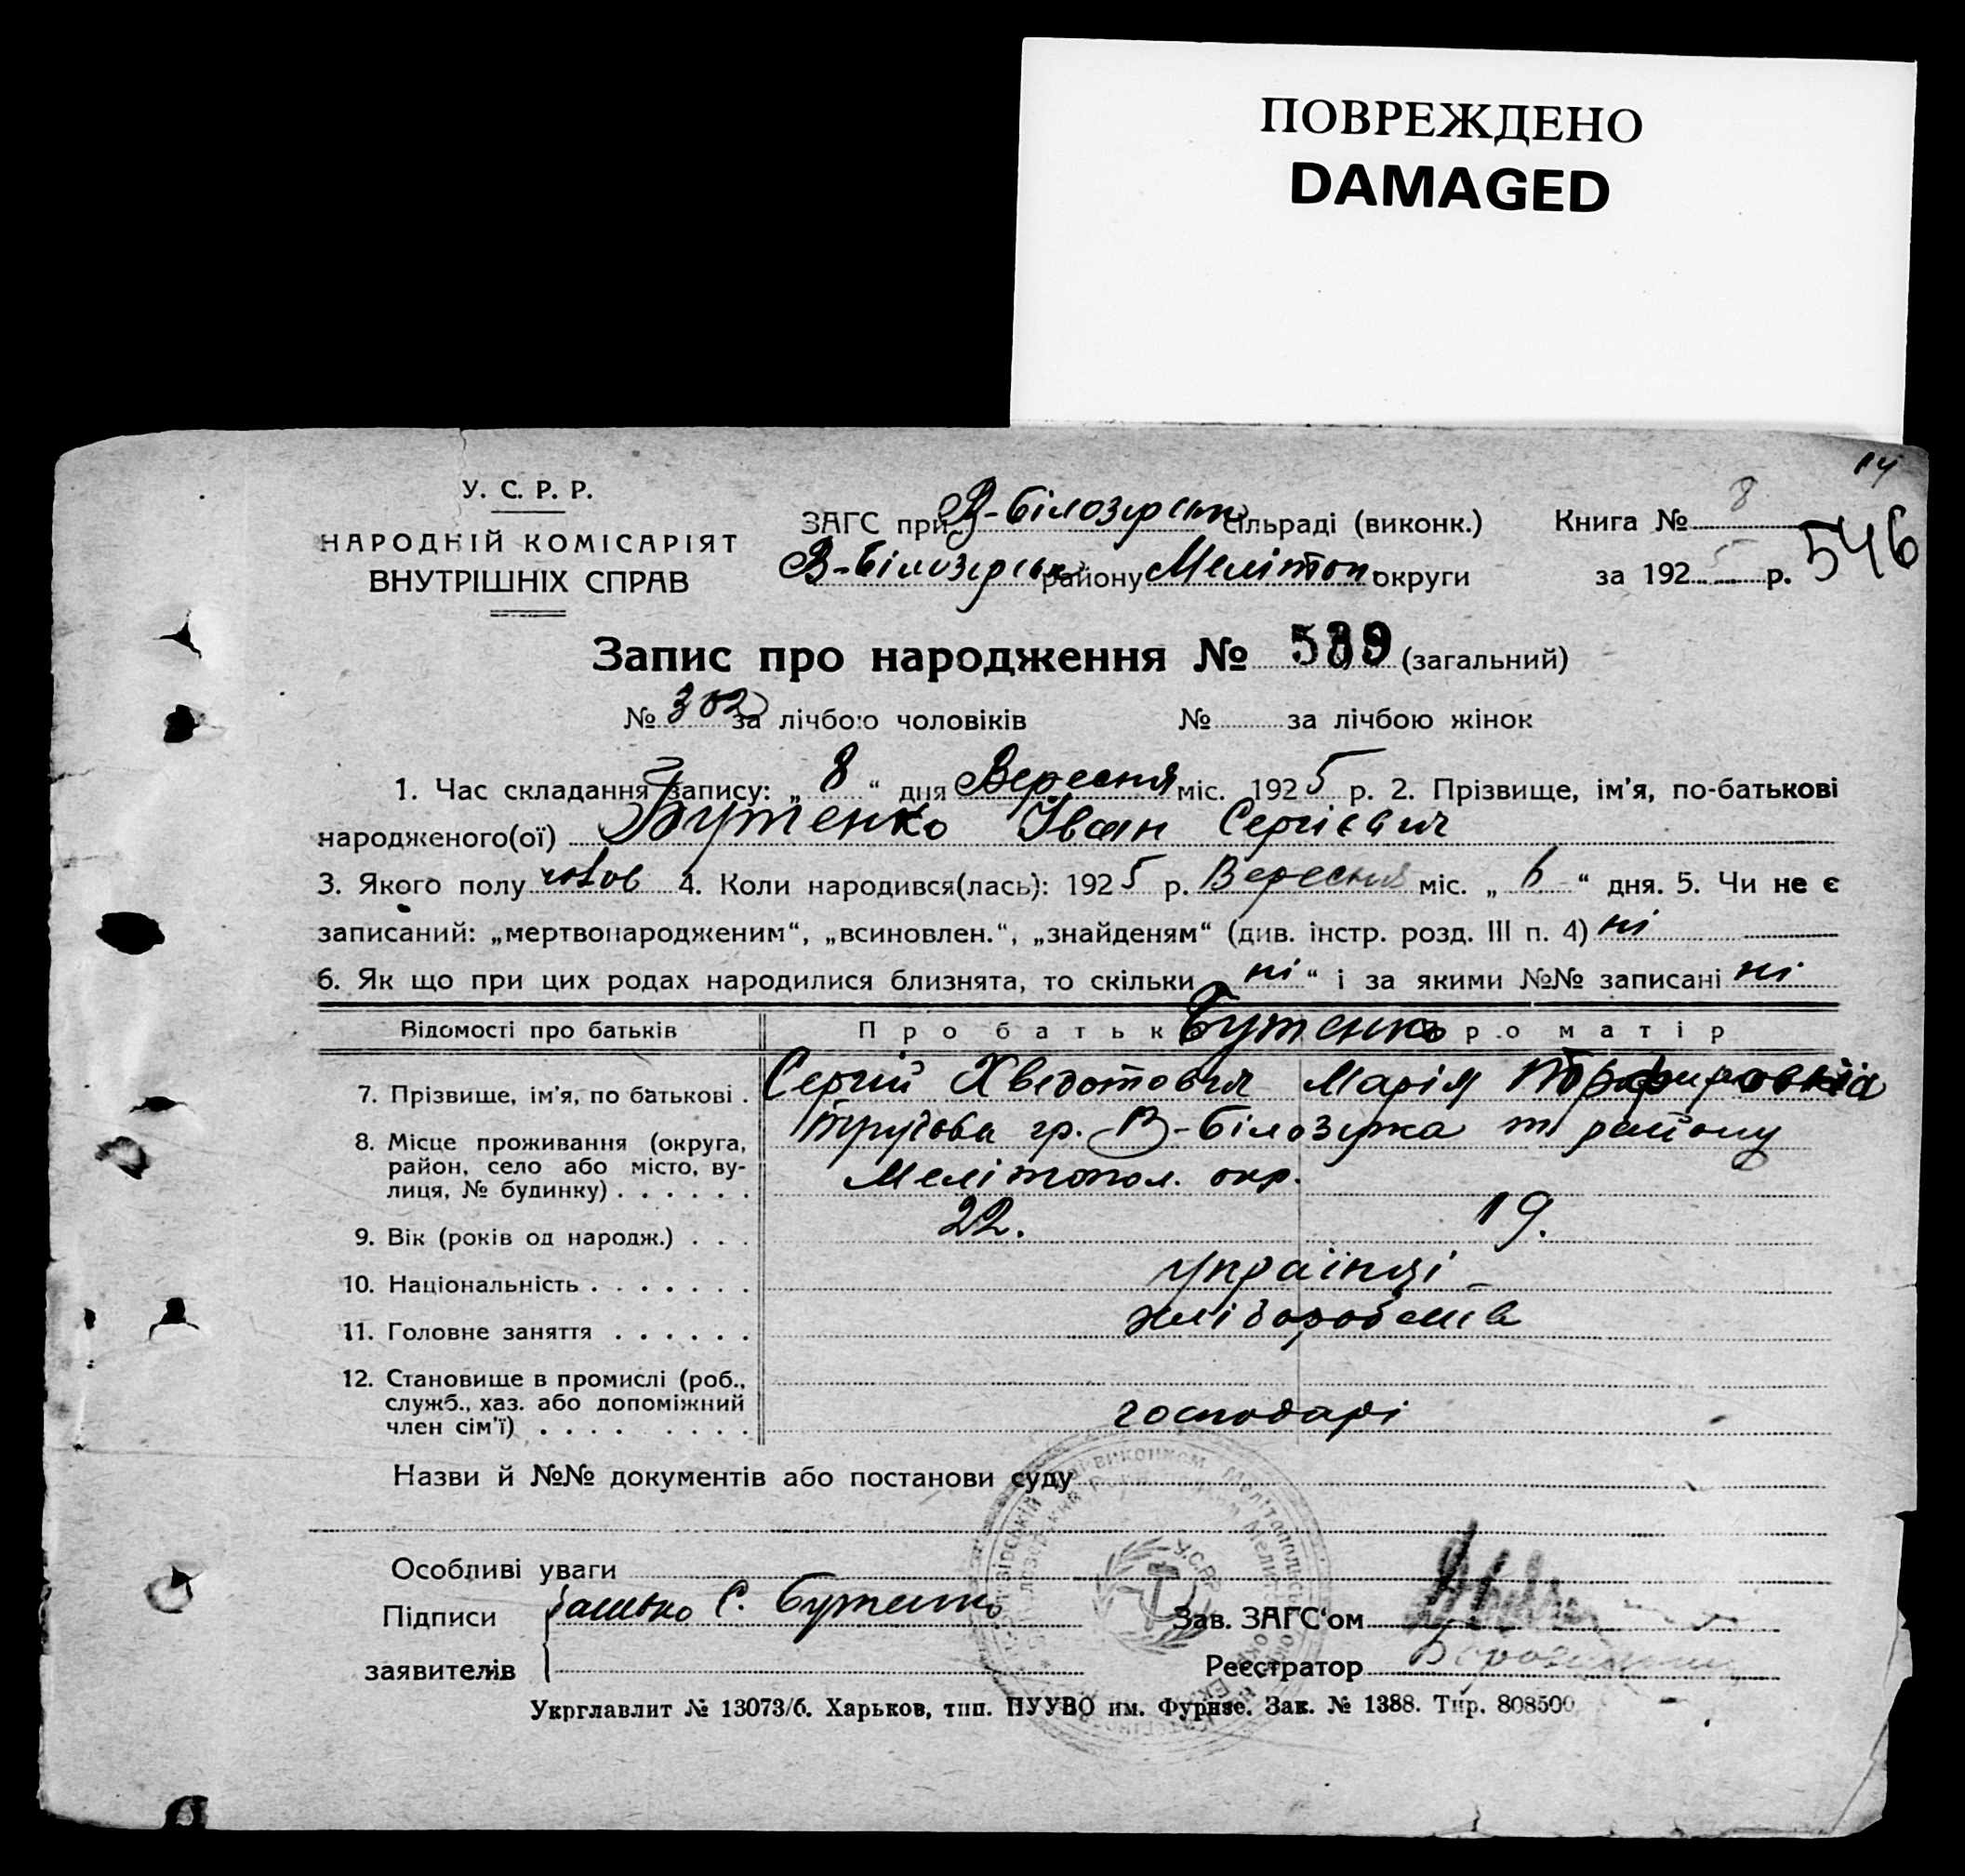 ПОВРЕЖДЕНО
DAMAGED
14
У. С. Р. Р.
НАРОДНІЙ КОМІСАРІЯТ
ВНУТРІШНІХ СПРАВ
ЗАГС при В-Білозірськ сільраді (виконк.)
В-Білозірськ району Мелітоп. округи
Книга № 8
за 1925 р. 546
Запис про народження № 539 (загальний)
№ 302 за лічбою чоловіків № за лічбою жінок
1. Час складання запису: „ 8 “ дня Вересня міс. 1925 р. 2. Прізвище, ім'я, по-батькові
народженого(ої) Бутенко Іван Сергієвич
3. Якого полу чолов 4. Коли народився(лась): 1925 р. Вересня міс. „ 6 “ дня. 5. Чи не є
записаний: „мертвонародженим“, „всиновлен.“, „знайденям“ (див. інстр. розд. III п. 4) ні
6. Як що при цих родах народилися близнята, то скільки „ ні “ і за якими №№ записані ні
Відомості про батьків Про батька Про матір
Бутенко
7. Прізвище, ім'я, по батькові . Сергій Хведотович Марія Порфировна
8. Місце проживання (округа, район, село або місто, вулиця, № будинку) . . . . . . гр. В-Білозірка т району
Мелітопол. окр.
9. Вік (років од народж.) . . . 22. 19.
10. Національність . . . . . . . українці
11. Головне заняття . . . . . . хліборобств
12. Становище в промислі (роб., служб., хаз. або допоміжний член сім'ї) . . . . . . . . господарі
Назви й №№ документів або постанови суду
Особливі уваги
Підписи заявителів батько С. Бутенко
Зав. ЗАГС'ом
Реєстратор
У.С.Р.Р.
Укрглавлит № 13073/6. Харьков, тип. ПУУВО им. Фурнзе. Зак. № 1388. Тир. 808500